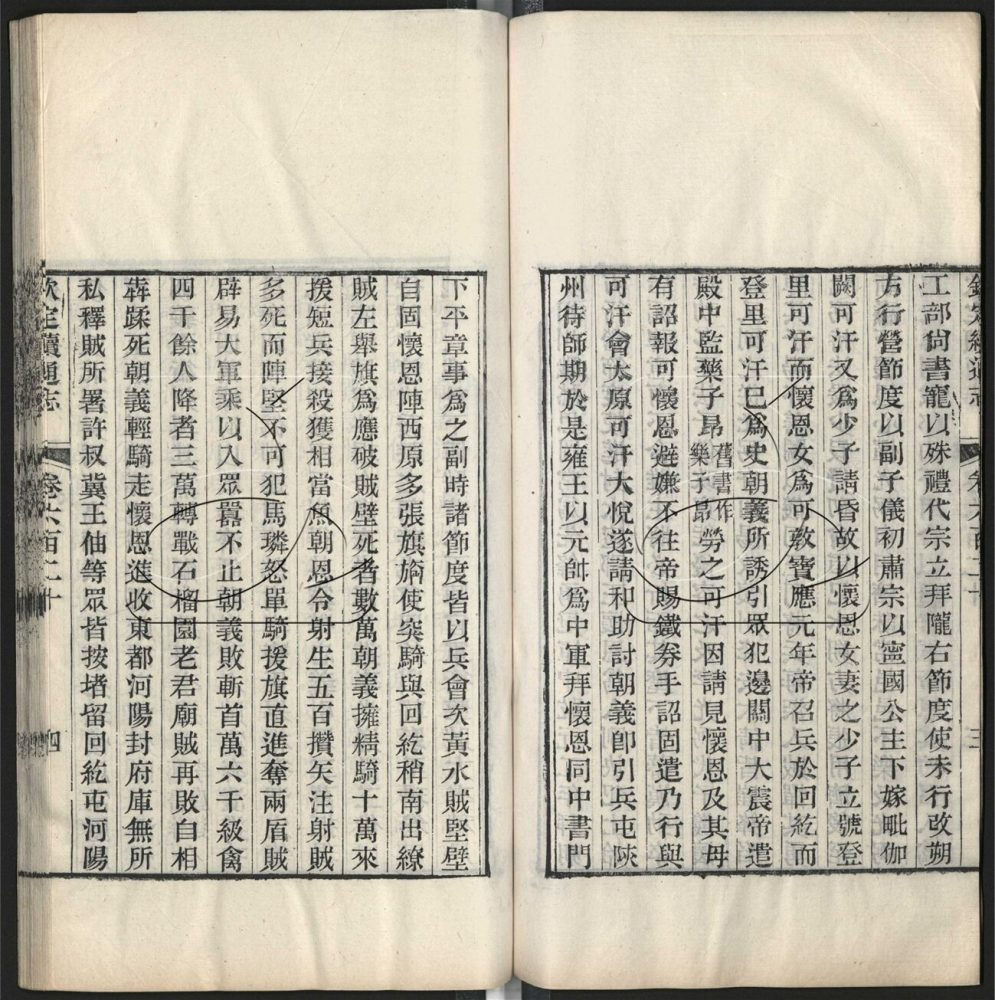 工部尙書寵以殊禮代宗立拜隴右節度使未行改朔
方行營節度以副子儀初肅宗以寧國公主下嫁毗伽
闕可汗又爲少子請昏故以懷恩女妻之少子立號登
里可汗而懷恩女爲可敦寶應元年帝召兵於回紇而
登里可汗已爲史朝義所誘引眾犯邊關中大震帝遣
殿中監藥子昻舊書作樂子昻勞之可汗因請見懷恩及其母
有詔報可懷恩避嫌不往帝賜鐵券手詔固遣乃行與
可汗會太原可汗大悅遂請和助討朝義卽引兵屯陝
州待師期於是雍王以元帥爲中軍拜懷恩同中書門
下平章事爲之副時諸節度皆以兵會次黃水賊堅壁
自固懷恩陣西原多張旗旃使突騎與回紇稍南出繚
賊左舉旗爲應破賊壁死者數萬朝義擁精騎十萬來
援短兵接殺獲相當魚朝恩令射生五百攢矢注射賊
多死而陣堅不可犯馬璘怒單騎援旗直進奪兩盾賊
辟易大軍乘以入眾囂不止朝義敗斬首萬六千級禽
四千餘人降者三萬轉戰石榴園老君廟賊再敗自相
蹂死朝義輕騎走懷恩進收東都河陽封府庫無所
私釋賊所署許叔冀王伷等眾皆按堵留回紇屯河陽
欽定續通志 卷六百二十 四